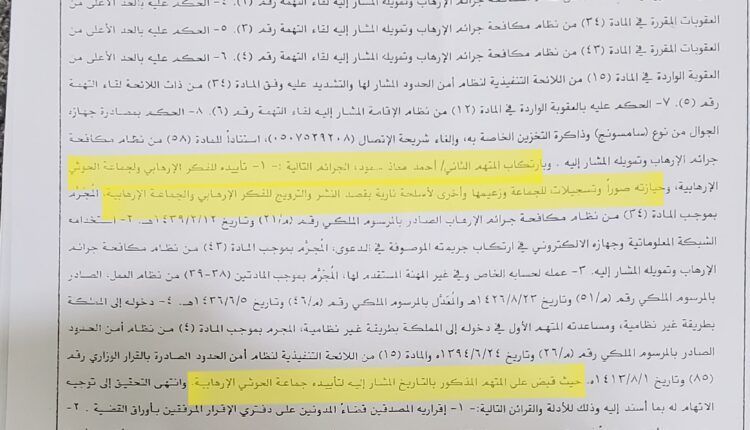 العقوبات المقررة في المادة (٣٤) من نظام مكافحة جرائم الإرهاب وتمويله المشار إليه لقاء التهمة رقم (١). ٤- الحكم عليه بالحد الأعلى من
العقوبات المقررة في المادة (٤٣) من نظام مكافحة جرائم الإرهاب وتمويله المشار إليه لقاء التهمة رقم (٣). ٥- الحكم عليه بالحد الأعلى من
العقوبة الواردة في المادة (١٥) من اللائحة التنفيذية لنظام أمن الحدود المشار لها والتشديد عليه وفق المادة (٣٤) من ذات اللائحة لقاء التهمة
رقم (٥). ٧- الحكم عليه بالعقوبة الواردة في المادة (١٢) من نظام الإقامة المشار إليه لقاء التهمة رقم (٦). ٨- الحكم بمصادرة جهازه
الجوال من نوع (سامسونج) وذاكرة التخزين الخاصة به، وإلغاء شريحة الإتصال (٠٥٠٧٥٢٩٢٠٨)، استناداً للمادة (٥٨) من نظام مكافحة
جرائم الإرهاب وتمويله المشار إليه . وبارتكاب المتهم الثاني/ أحمد معاذ سعود، الجرائم التالية :- ١- تأييده للفكر الإرهابي ولجماعة الحوثي
الإرهابية، وحيازته صوراً وتسجيلات للجماعة وزعيمها وأخرى لأسلحة نارية بقصد النشر والترويج للفكر الإرهابي والجماعة الإرهابية، المُجرّم
بموجب المادة (٣٤) من نظام مكافحة جرائم الإرهاب الصادر بالمرسوم الملكي رقم (م/٢١) وتاريخ ١٤٣٩/٢/١٢هـ. ٢- استخدامه
الشبكة المعلوماتية وجهازه الالكتروني في ارتكاب جريمته الموصوفة في الدعوى، المُجرّم بموجب المادة (٤٣) من نظام مكافحة جرائم
الإرهاب وتمويله المشار إليه. ٣- عمله لحسابه الخاص وفي غير المهنة المستقدم لها، المُجرّم بموجب المادتين (٣٨-٣٩) من نظام العمل، الصادر
بالمرسوم الملكي رقم (م/٥١) وتاريخ ١٤٢٦/٨/٢٣هـ والمُعدّل بالمرسوم الملكي رقم (م/٤٦) وتاريخ ١٤٣٦/٦/٥هـ. ٤- دخوله إلى المملكة
بطريقة غير نظامية، ومساعدته المتهم الأول في دخوله إلى المملكة بطريقة غير نظامية، المجرم بموجب المادة (٤) من نظام أمن الحدود
الصادر بالمرسوم الملكي رقم (م/٢٦) وتاريخ ١٣٩٤/٦/٢٤هـ والمادة (١٥) من اللائحة التنفيذية لنظام أمن الحدود الصادرة بالقرار الوزاري رقم
(٨٥) وتاريخ ١٤١٣/٨/١هـ. حيث قبض على المتهم المذكور بالتاريخ المشار إليه لتأييده جماعة الحوثي الإرهابية. وانتهى التحقيق إلى توجيه
الاتهام له بما أسند إليه وذلك للأدلة والقرائن التالية:- ١- إقراريه المصدقين قضاءً المدونين على دفتري الإقرار المرفقين بأوراق القضية . ٢-